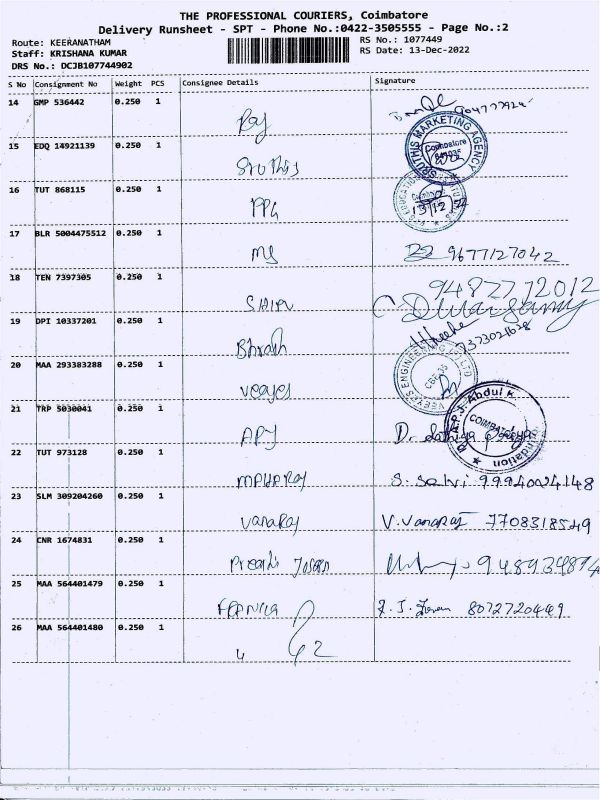 THE PROFESSIONAL COURIERS, Coimbatore
Delivery Runsheet - SPT - Phone No.:0422-3505555 - Page No.:2
Route: KEERANATHAM
RS No.: 1077449
Staff: KRISHANA KUMAR
RS Date: 13-Dec-2022
DRS No.: DCJB107744902
S No Consignment No Weight PCS Consignee Details Signature
14 GMP 536442 0.250 1
Raj
15 EDQ 14921139 0.250 1
Sruthis
SRUTHIS MARKETING AGENCY
Coimbatore
641035
16 TUT 868115 0.250 1
PPG
13/12/22
17 BLR 5004475512 0.250 1
MS 9677127042
18 TEN 7397305 0.250 1
9482772012
19 DPI 10337201 0.250 1
Bharath
7373021628
20 MAA 293383288 0.250 1
Veeyes
VEEYES ENGINEERING
CBE-35
21 TRP 5030041 0.250 1
APJ
Dr. A.P.J. Abdul K. Foundation
COIMBATORE
22 TUT 973128 0.250 1
MAHARAJ S. Selvi 9994024148
23 SLM 309204260 0.250 1
Vanaraj V. Vanaraj 7708318549
24 CNR 1674831 0.250 1
Preethi Joseph
25 MAA 564401479 0.250 1
8072720449
26 MAA 564401480 0.250 1
4 62